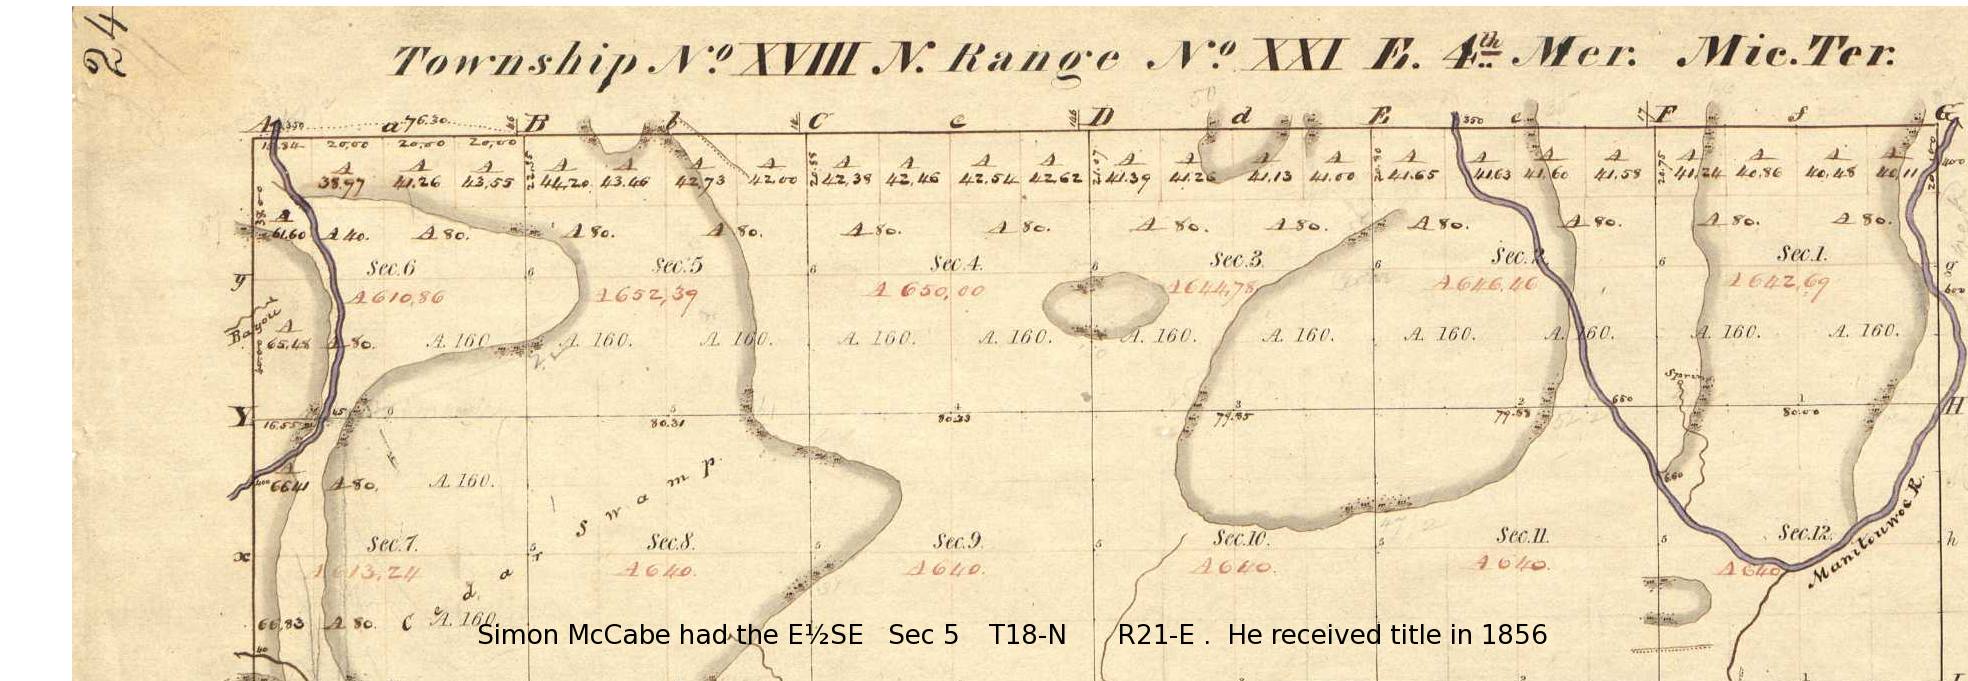 24
Township Nº XVIII N. Range Nº XXI E. 4th Mer. Mic. Ter.
A 350 a 76.30 B b C c D d E 350 e F f G
20,00 20,00 20,00
A A A A A A A A A A A A A A A A A A A A A A A
38.97 41.26 43,55 44,20 43.46 42,73 42.00 42,38 42,46 42.54 42,62 41.39 41.26 41.13 41.00 41.65 41.63 41.60 41.58 41,24 40,86 40,48 40,11
400
A
61.60 A 40. A 80. A 80. A 80. A 80. A 80. A 80. A 80. A 80. A 80. A 80. A 80.
Sec. 6 Sec. 5 Sec. 4. Sec. 3. Sec. 2. Sec. 1.
y 6 6 6 6 6 g
A 610,86 A 652,39 A 650,00 A 644,78 A 646,46 A 642,69 600
Bayou
A
65,48 A 80. A. 160. A. 160. A. 160. A. 160. A. 160. A. 160. A. 160. A. 160. A. 160. A. 160. A. 160.
Spring
Y 16.55 45 6 80.31 80.33 79.85 79.88 650 80.00 H
A
66,41 A 80. A. 160.
Swamp
660
Manitouwoc R.
Sec. 7. Sec. 8. Sec. 9. Sec. 10. Sec. 11. Sec. 12.
x 5 5 5 5 5 h
A 613,24 A 640. A 640. A 640. A 640. A 640
Ceda
66,83 A 80. A. 160.
Simon McCabe had the E½SE Sec 5 T18-N R21-E . He received title in 1856
40